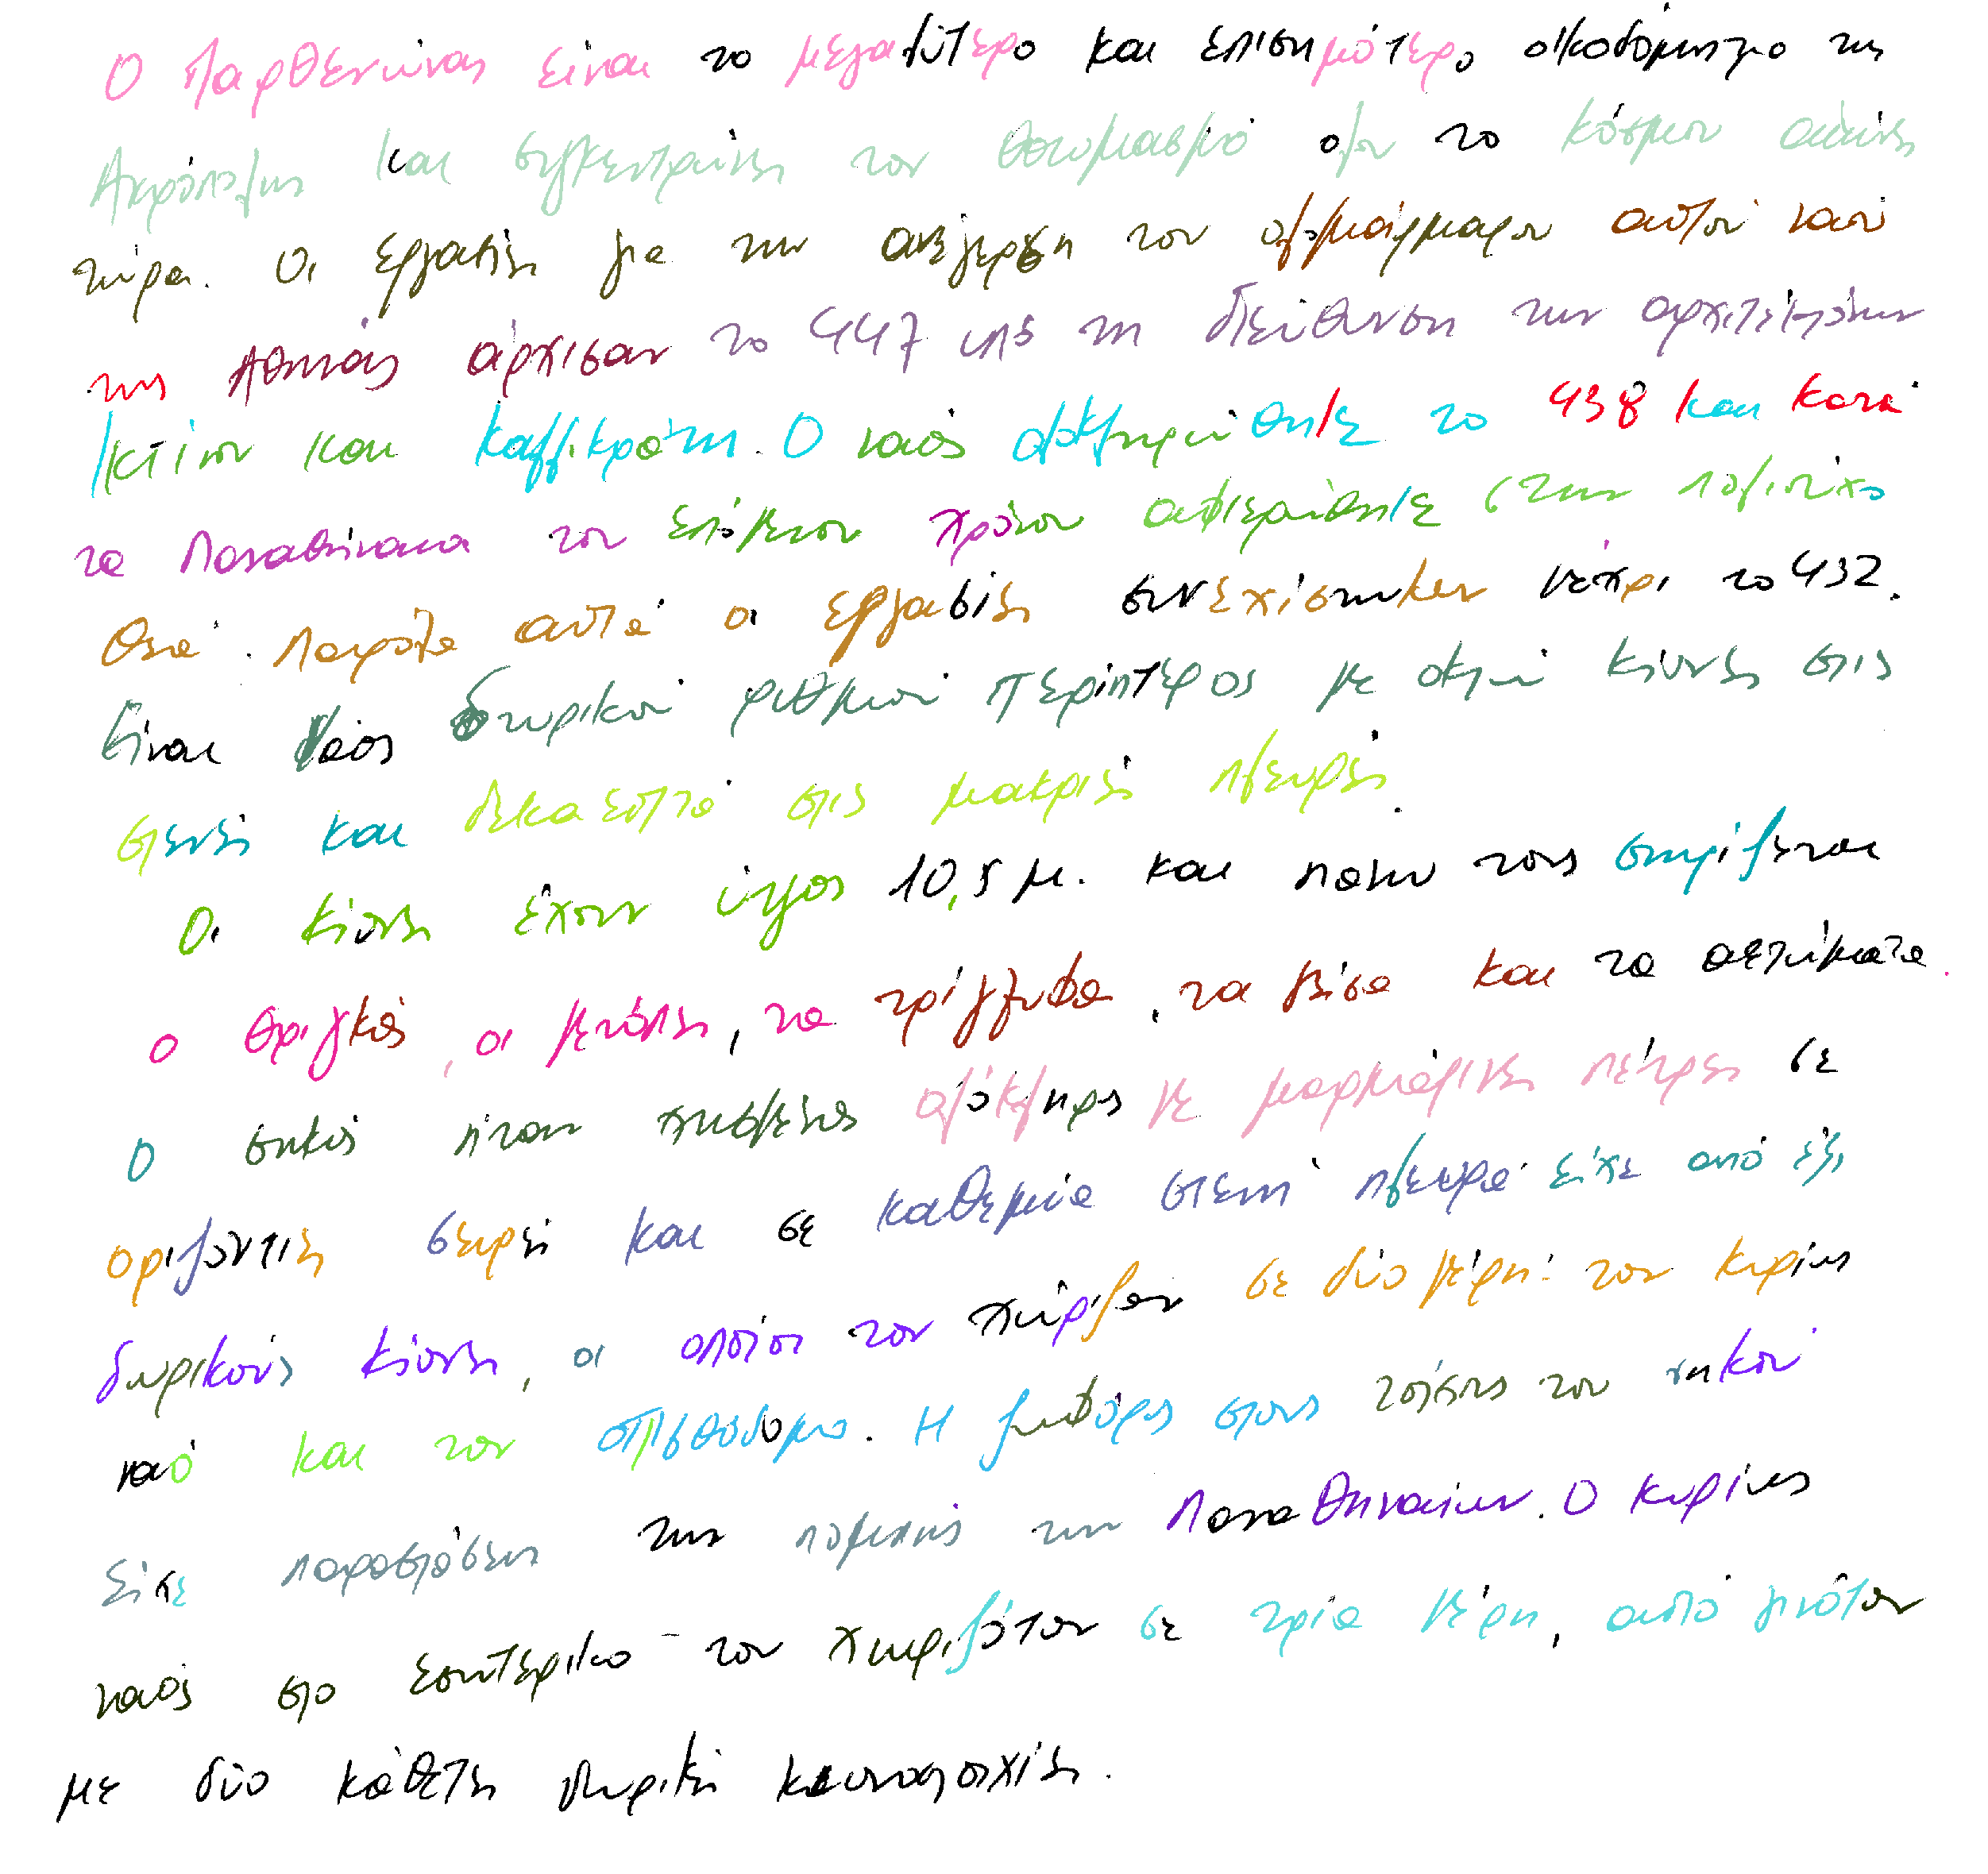 Ο Παρθενώνας είναι το μεγαλύτερο και επισημότερο οικοδόμημα της
Ακρόπολης και συγκεντρώνει τον θαυμασμό όλου το κόσμου αιώνες
τώρα. Οι εργασίες για την ανέγερση του ολομάρμαρου αυτού ναού
της Αθηνάς άρχισαν το 447 υπό τη διεύθυνση των αρχιτεκτόνων
Ικτίνου και Καλλικράτη. Ο ναός ολοκληρώθηκε το 438 και κατά
τα Παναθήναια του επόμενου χρόνου αφιερώθηκε στην πολιούχο
θεά. Παρόλα αυτά οι εργασίες συνεχίστηκαν μέχρι το 432.
Είναι ναός δωρικού ρυθμού περίπτερος με οκτώ κίονες στις
στενές και δεκαεπτά στις μακριές πλευρές.
Οι κίονες έχουν ύψος 10,5 μ. και πάνω τους στηρίζεται
ο θριγκός, οι μετόπες, τα τρίγλυφα, τα γείσα και τα αετώματα.
Ο σηκός ήταν χτισμένος ολόκληρος με μαρμάρινες πέτρες σε
οριζόντιες σειρές και σε καθεμία στενή πλευρά είχε από έξι
δωρικούς κίονες, οι οποίοι τον χώριζαν σε δύο μέρη: τον κυρίως
ναό και τον οπισθόδομο. Η ζωφόρος στους τοίχους του σηκού
είχε παραστάσεις της πομπής των Παναθηναίων. Ο κυρίως
ναός στο εσωτερικό του χωριζόταν σε τρία μέρη, αυτό γινόταν
με δύο κάθετες δωρικές κιονοστοιχίες.